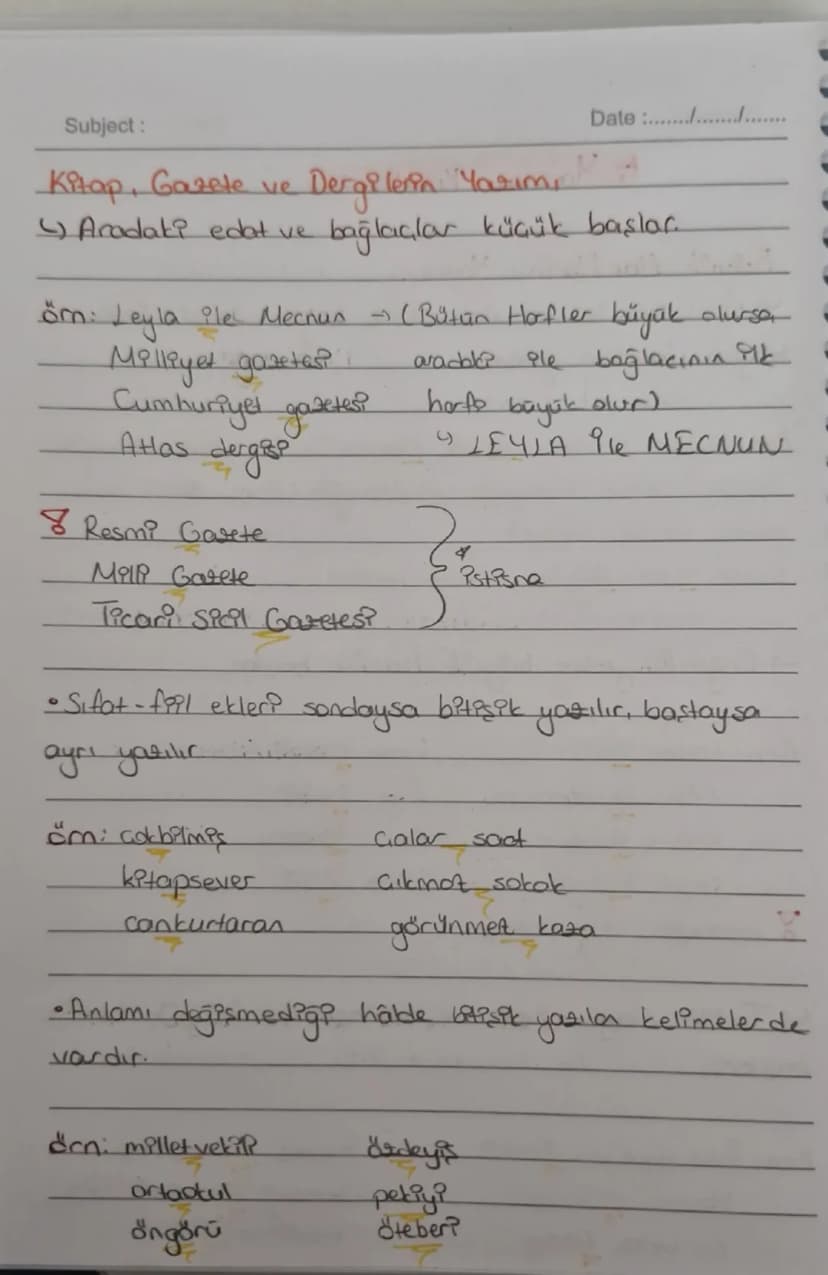 Subject :
Date :......./......./.......
Kitap, Gazete ve Dergilerin Yazımı
↳ Aradaki edat ve bağlaçlar küçük başlar.
örn: Leyla ile Mecnun → (Bütün Harfler büyük olursa
Milliyet gazetesi aradaki ile bağlacının ilk
Cumhuriyet gazetesi harfi büyük olur)
Atlas dergisi ↳ LEYLA İle MECNUN
Resmi Gazete
Milli Gazete
istisna
Ticari Sicil Gazetesi
• Sıfat-fiil ekleri sondaysa bitişik yazılır, baştaysa
ayrı yazılır
örn: çokbilmiş çalar saat
kitapsever çıkmaz sokak
cankurtaran görünmez kaza
• Anlamı değişmediği hâlde bitişik yazılan kelimelerde
vardır.
örn: milletvekili özdeyiş
ortaokul pekiyi
öngörü öteberi